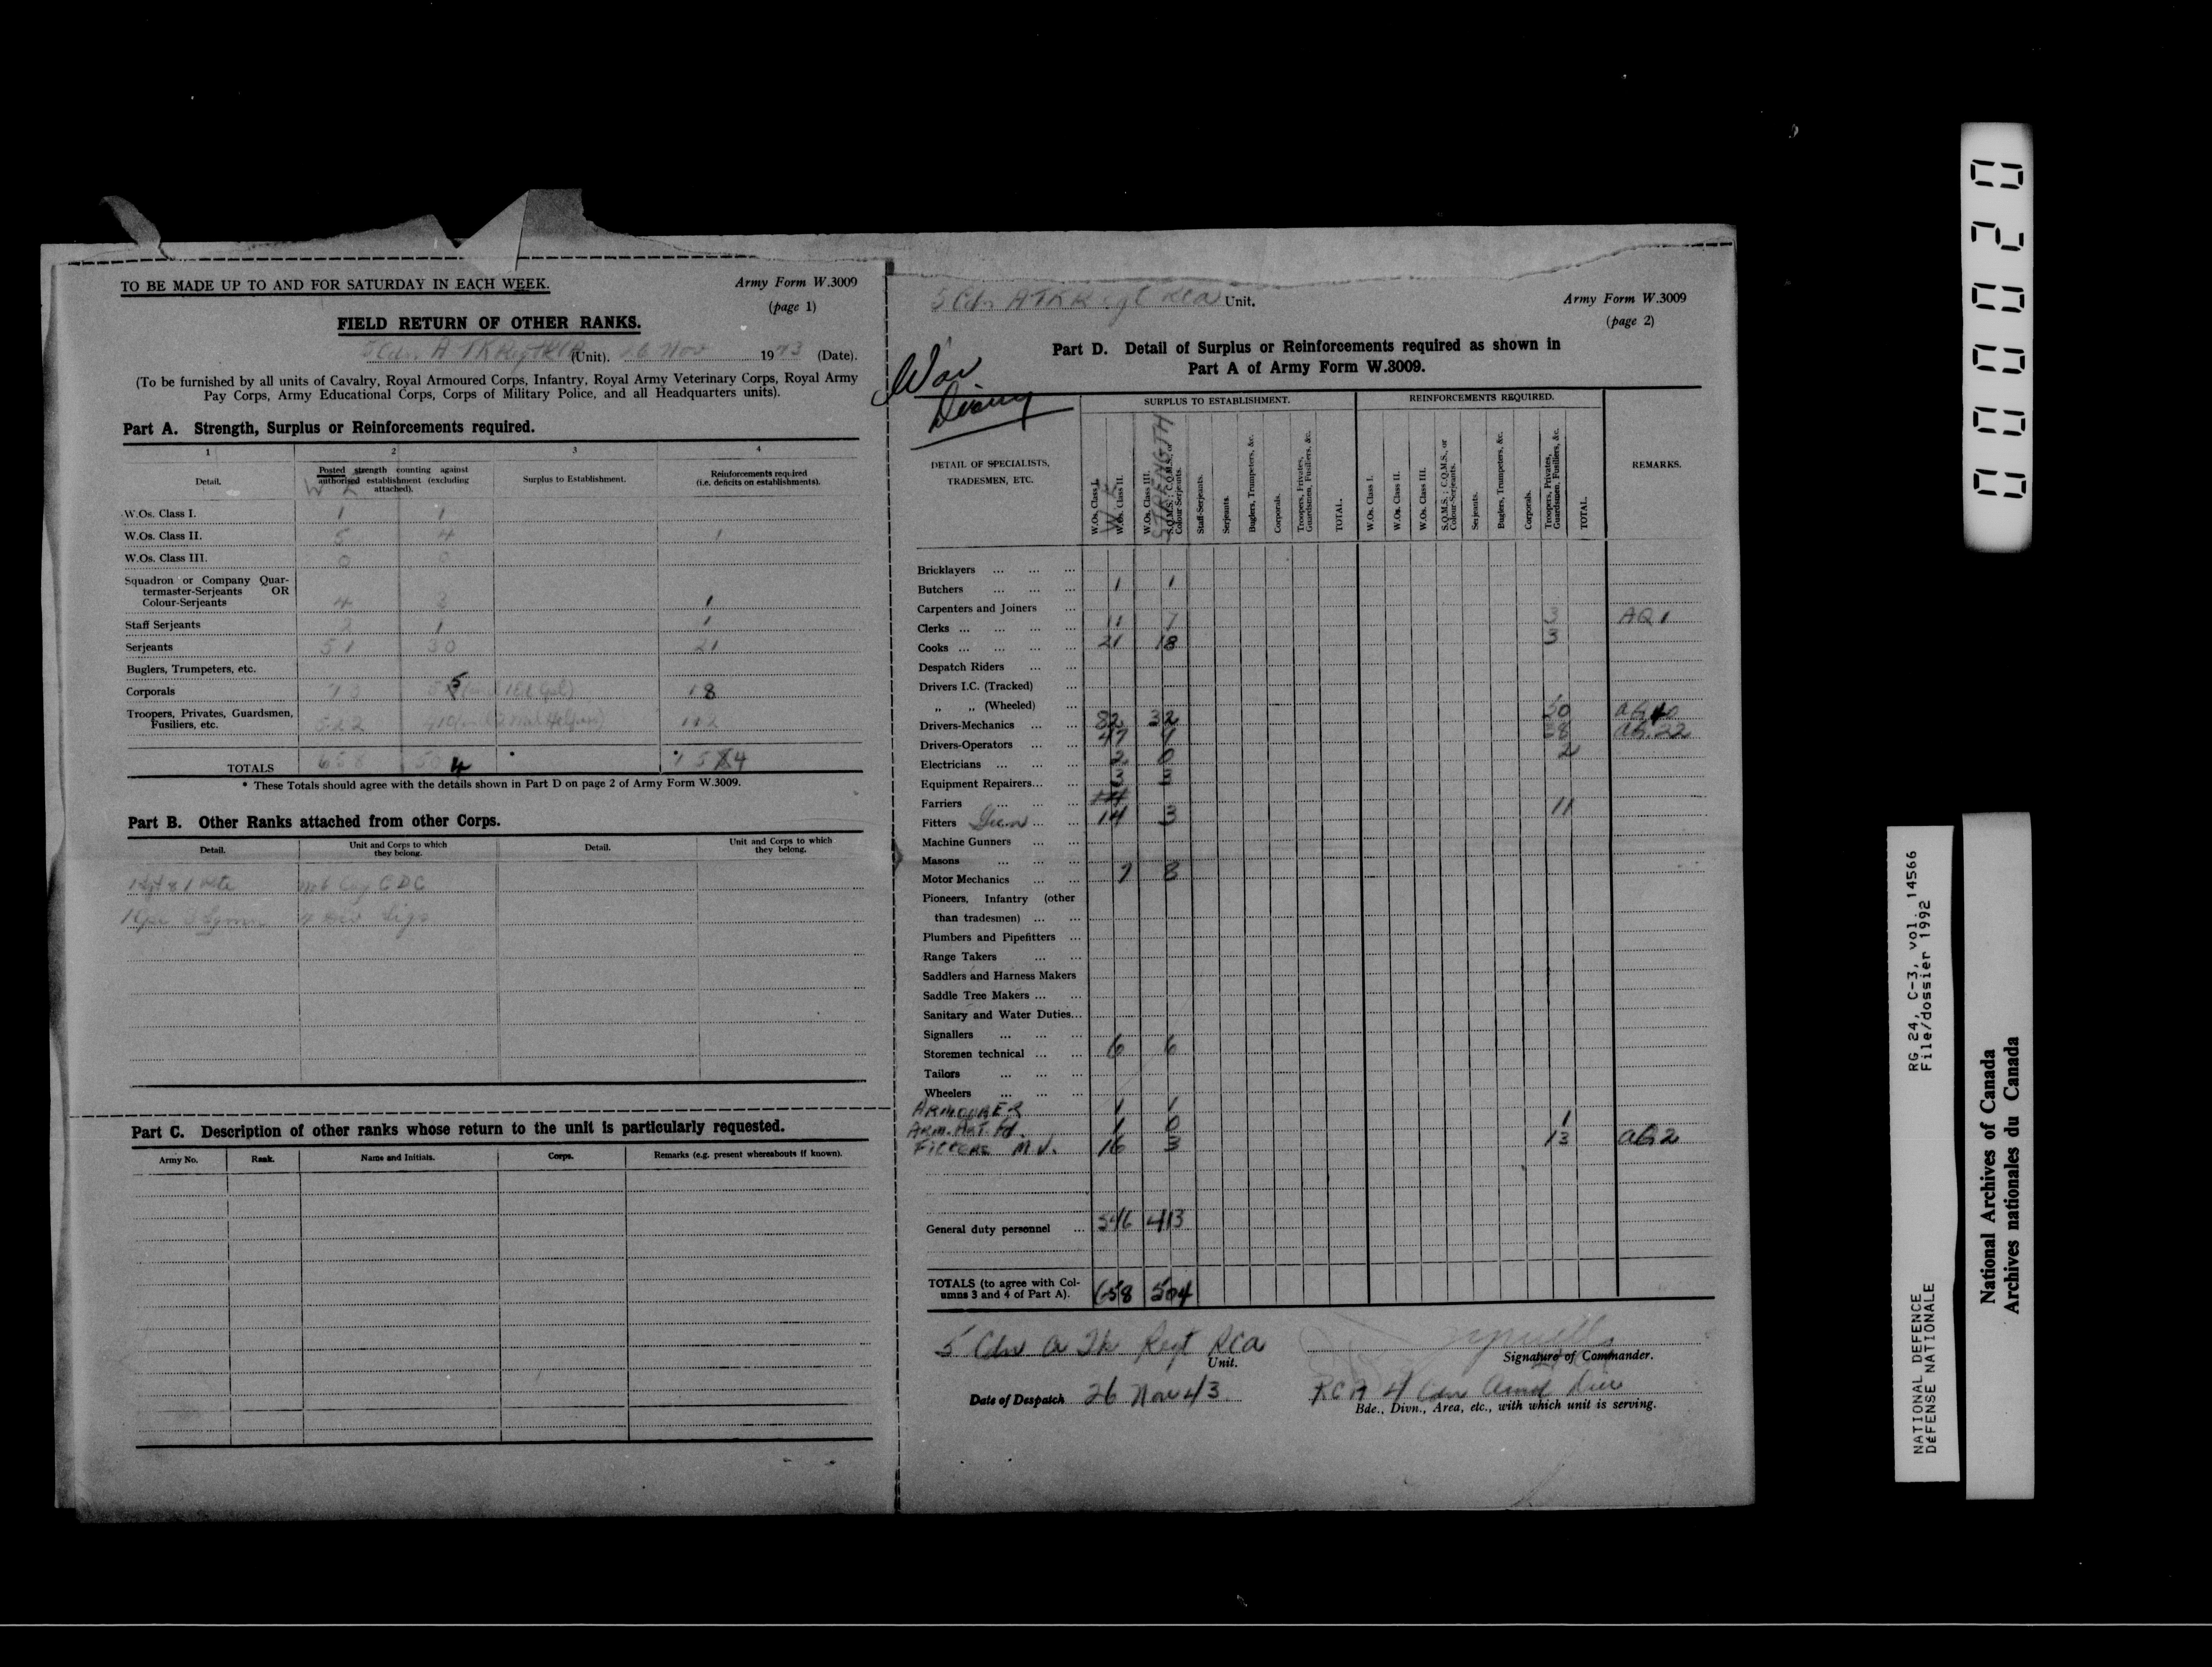 TO BE MADE UP TO AND FOR SATURDAY IN EACH WEEK.
Army Form W.3009
(page 1)
FIELD RETURN OF OTHER RANKS.
(Unit). 26 Nov 1943 (Date).
(To be furnished by all units of Cavalry, Royal Armoured Corps, Infantry, Royal Army Veterinary Corps, Royal Army
Pay Corps, Army Educational Corps, Corps of Military Police, and all Headquarters units).
Part A. Strength, Surplus or Reinforcements required.
1 2 3 4
Detail.
Posted strength counting against
authorised establishment (excluding
attached).
W E
Surplus to Establishment.
Reinforcements required
(i.e. deficits on establishments).
W.Os. Class I. 1 1
W.Os. Class II. 5 4 1
W.Os. Class III. 0 0
Squadron or Company Quar-
termaster-Serjeants OR
Colour-Serjeants 4 3 1
Staff Serjeants 2 1 1
Serjeants 51 30 21
Buglers, Trumpeters, etc.
Corporals 18
Troopers, Privates, Guardsmen,
Fusiliers, etc. 522 410 112
TOTALS 658 504 * * 154
* These Totals should agree with the details shown in Part D on page 2 of Army Form W.3009.
Part B. Other Ranks attached from other Corps.
Detail.
Unit and Corps to which
they belong.
Detail.
Unit and Corps to which
they belong.
Coy CDC
4 Div Sigs
Part C. Description of other ranks whose return to the unit is particularly requested.
Army No. Rank. Name and Initials. Corps. Remarks (e.g. present whereabouts if known).
5 Cdn A TK Regt RCA Unit.
Army Form W.3009
(page 2)
War
Diary
Part D. Detail of Surplus or Reinforcements required as shown in
Part A of Army Form W.3009.
DETAIL OF SPECIALISTS,
TRADESMEN, ETC.
SURPLUS TO ESTABLISHMENT.
REINFORCEMENTS REQUIRED.
REMARKS.
W.Os. Class I.
W.Os. Class II.
W E
W.Os. Class III.
S.Q.M.S.; C.Q.M.S., or
Colour-Serjeants.
STRENGTH
Staff-Serjeants.
Serjeants.
Buglers, Trumpeters, &c.
Corporals.
Troopers, Privates,
Guardsmen, Fusiliers, &c.
TOTAL.
W.Os. Class I.
W.Os. Class II.
W.Os. Class III.
S.Q.M.S.; C.Q.M.S., or
Colour-Serjeants.
Serjeants.
Buglers, Trumpeters, &c.
Corporals.
Troopers, Privates,
Guardsmen, Fusiliers, &c.
TOTAL.
Bricklayers ... ... ...
Butchers ... ... ... 1 1
Carpenters and Joiners ...
Clerks ... ... ... ... 11 7 3 AQ 1
Cooks ... ... ... ... 21 18 3
Despatch Riders ... ...
Drivers I.C. (Tracked) ...
„ „ (Wheeled) ...
Drivers-Mechanics ... ... 82 32 50
Drivers-Operators ... ... 47 38
Electricians ... ... ... 2 0 2
Equipment Repairers... ... 3 3
Farriers ... ... ...
Fitters Gun ... ... 14 3 11
Machine Gunners ... ...
Masons ... ... ...
Motor Mechanics ... ... 8
Pioneers, Infantry (other
than tradesmen) ... ...
Plumbers and Pipefitters ...
Range Takers ... ...
Saddlers and Harness Makers
Saddle Tree Makers ... ...
Sanitary and Water Duties...
Signallers ... ... ...
Storemen technical ... ... 6 6
Tailors ... ... ...
Wheelers ... ... ...
ARMOURER 1 1
1 0 1
FITTERS M.V. 16 3 13
General duty personnel ... 413
TOTALS (to agree with Col-
umns 3 and 4 of Part A). 658 504
5 Cdn A Tk Regt RCA
Unit.
Signature of Commander.
Date of Despatch 26 Nov 43.
RCA 4 Cdn Armd Div
Bde., Divn., Area, etc., with which unit is serving.
000020
RG 24, C-3, vol. 14566
File/dossier 1992
NATIONAL DEFENCE
DÉFENSE NATIONALE
National Archives of Canada
Archives nationales du Canada